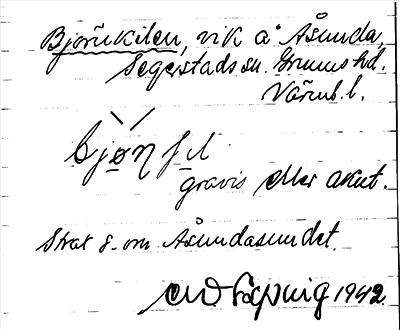 Björnkilen, vik å Åsunda,
Segerstads sn. Grums hd.
Värml. l.
gravis eller akut.
Strax s. om Åsundasundet.
1942